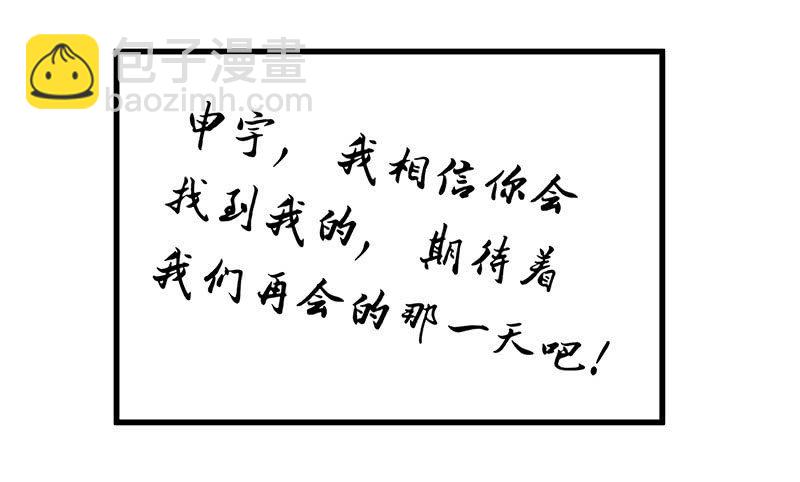 包子漫畫
baozimh.com
申宇，我相信你会
找到我的，期待着
我们再会的那一天吧！